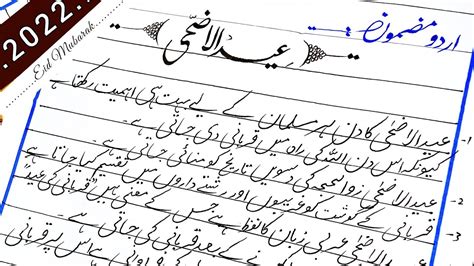 .2022.
Eid Mubarak
اردو مضمون
عید الاضحٰی
1- عید الاضحٰی کا دن ہر مسلمان کے لیے بہت ہی اہمیت رکھتا ہے
کیونکہ اس دن اللہ کی راہ میں قربانی دی جاتی ہے۔
2- عید الاضحٰی ذوالحجہ کی دسویں تاریخ کو منائی جاتی ہے
3- قربانی کے گوشت کو غریبوں اور رشتے داروں میں تقسیم کیا جاتا ہے
عید الاضحٰی عربی زبان کا لفظ ہے جس کے معنی ہیں "قربانی کی عید"
کے بعد قربانی کی جاتی ہے۔
اس پر قربانی